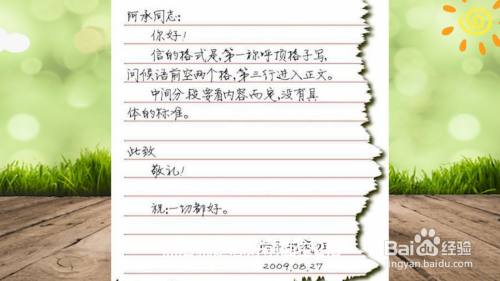 阿水同志：
你好！
信的格式是，第一称呼顶格子写，
问候语前空两个格，第三行进入正文。
中间分段要看内容而定，没有具
体的标准。
此致
敬礼！
祝：一切都好。
2009.08.27
Baidu 经验
jingyan.baidu.com